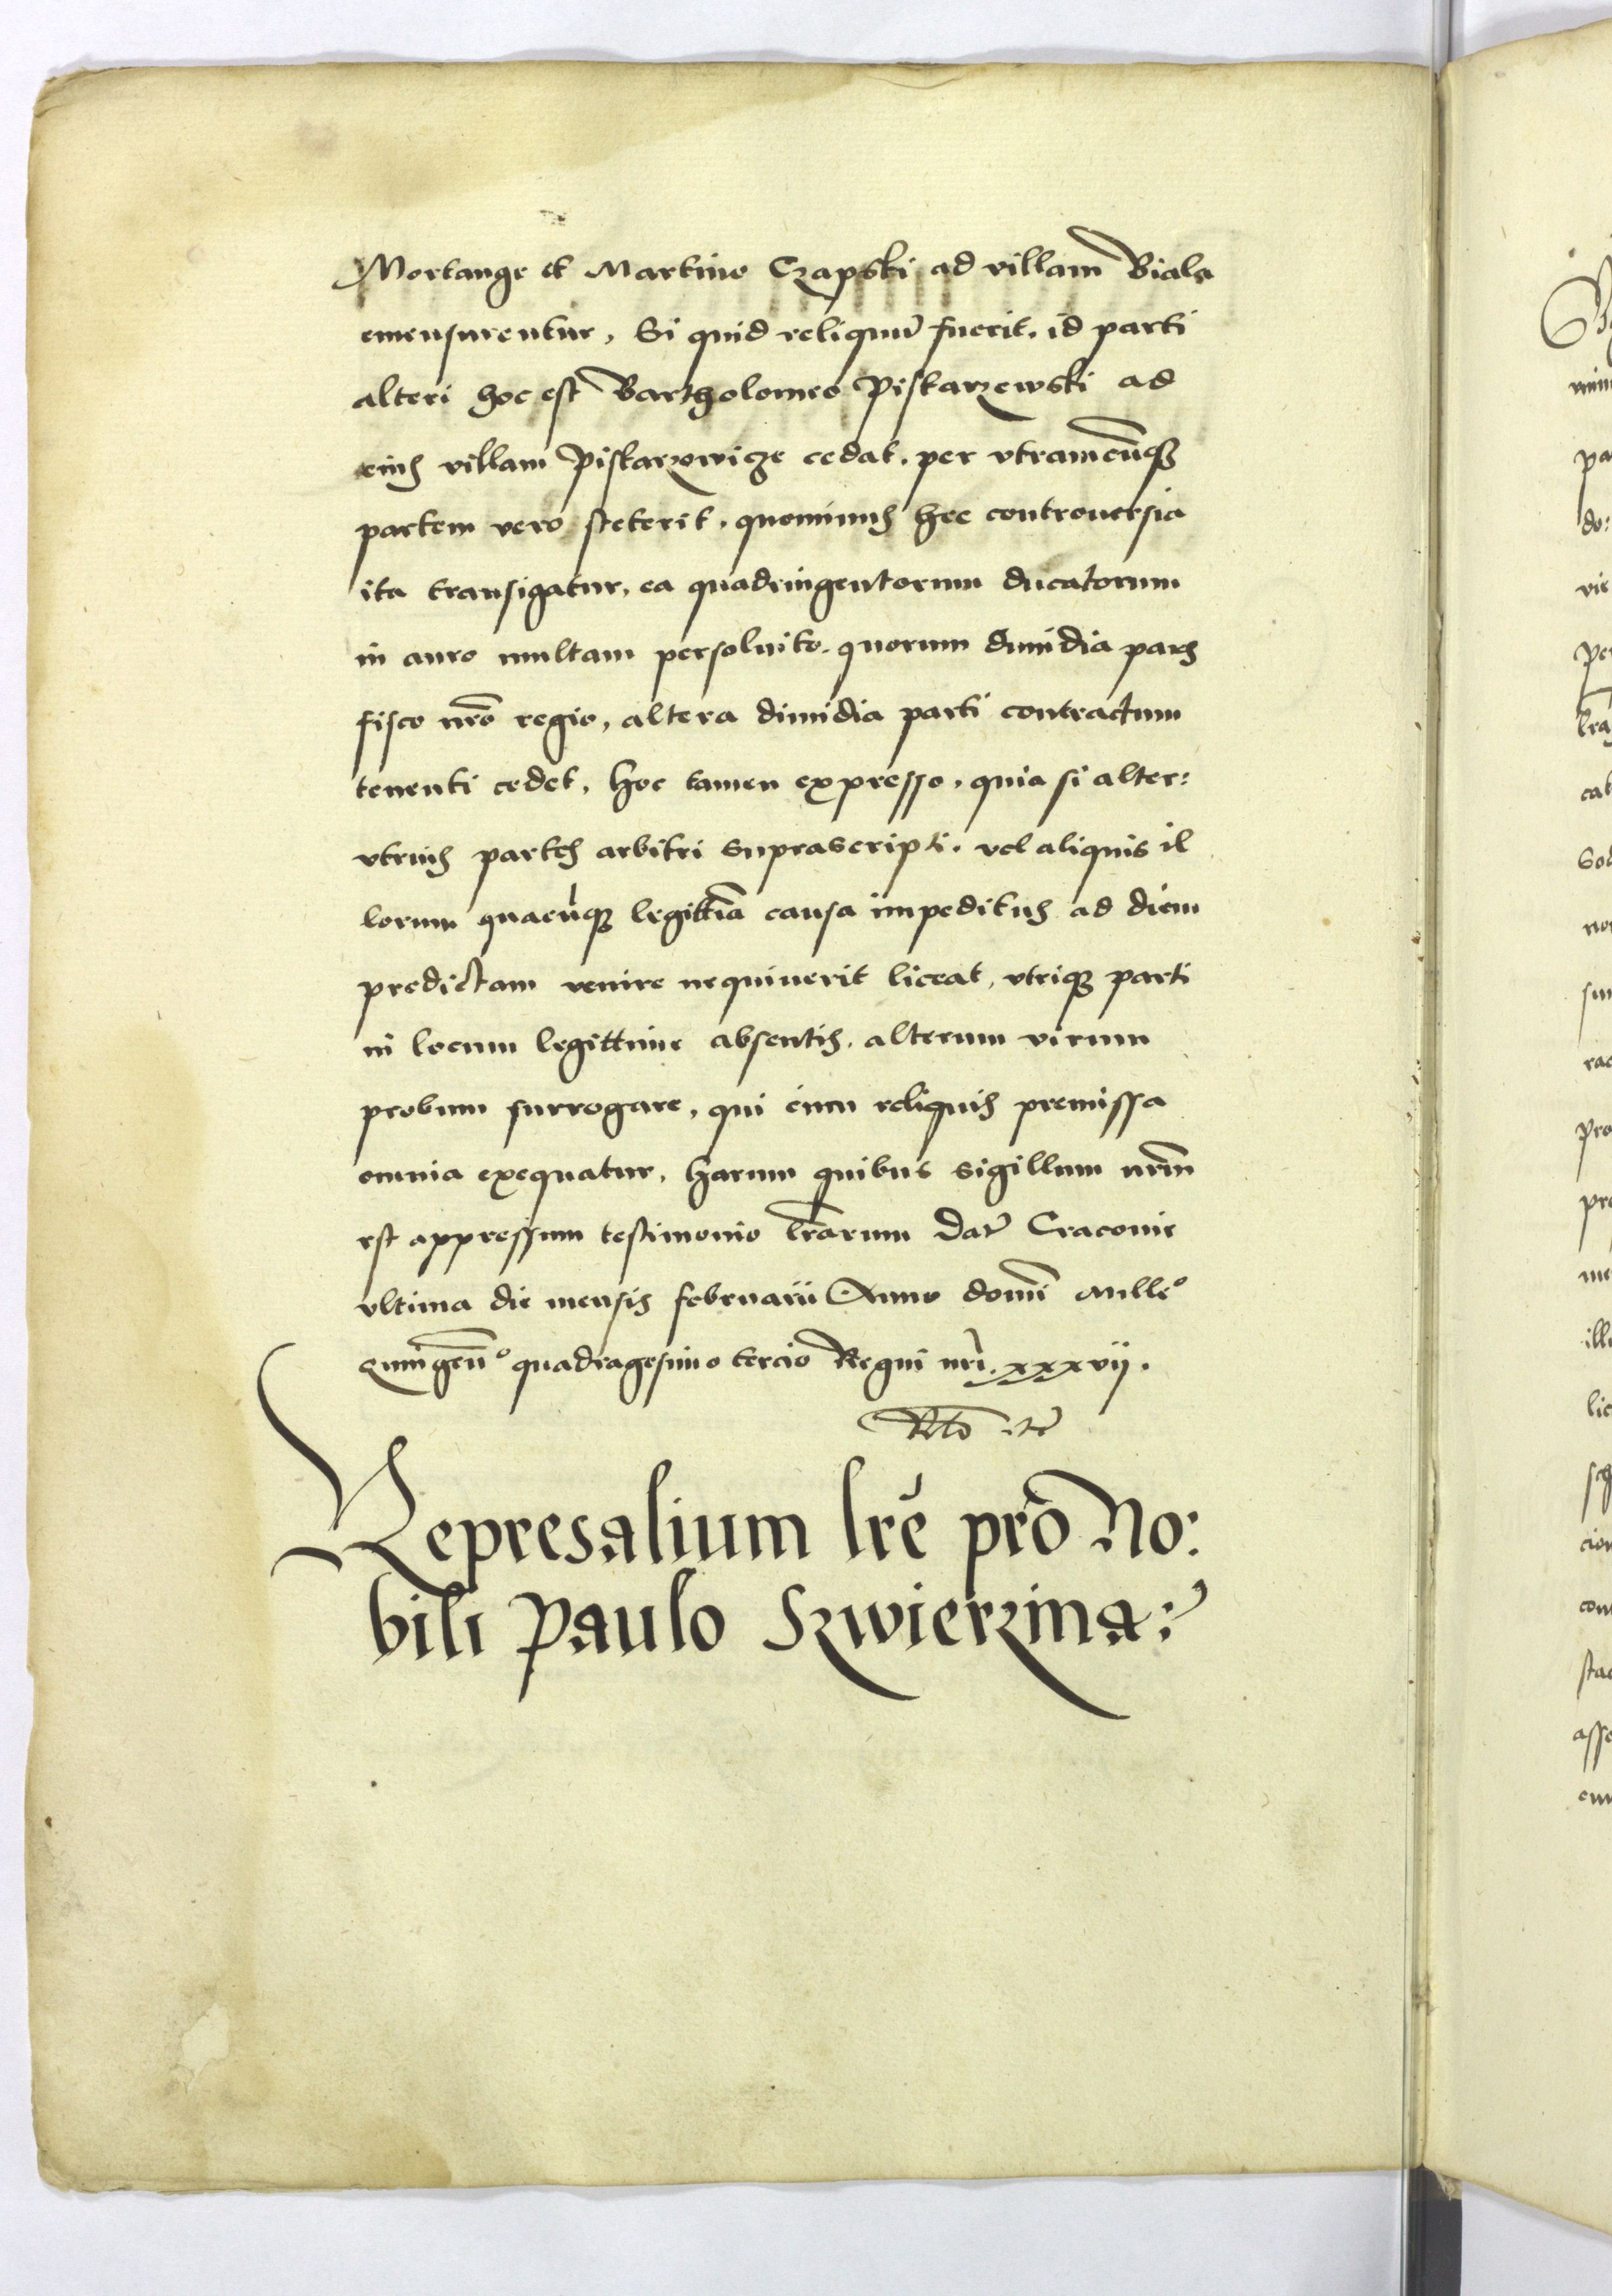 Mortange et Martino Czapski ad villam Biala
emensurentur, Si quid reliquū fuerit, id parti
alteri hoc est Bartholomeo Piskarzewski ad
eius villam Piskarzowicze cedat, per vtramcūq3
partem vero steterit, quominus hec controuersia
ita transigatur, ea quadringentorum ducatorum
in auro multam persoluito, quorum dimidia pars
fisco nrō regio, altera dimidia parti contractum
tenenti cedet, hoc tamen expresso, quia si alter:
vtrius partis arbitri suprascripti, vel aliquis il
lorum quacūq3 legittīa causa impeditus ad diem
predictam venire nequiuerit liceat, vtriq3 parti
in locum legittime absentis, alterum virum
probum surrogare, qui cum reliquis premissa
omnia exequatur, harum quibus sigillum nrm̄
est appressum testimonio lr̄arum Dat̄ Cracovie
vltima die mensis februarii Anno domī Mille°
quīgen̄° quadragesimo tercio Regni nrī. xxxvij.
Rtō
Represalium lrē pro No:
bili Paulo Szwierzina: